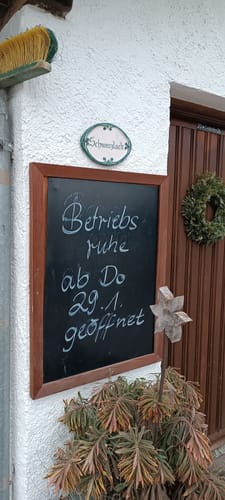 Betriebs
ruhe
ab Do
29.1.
geöffnet